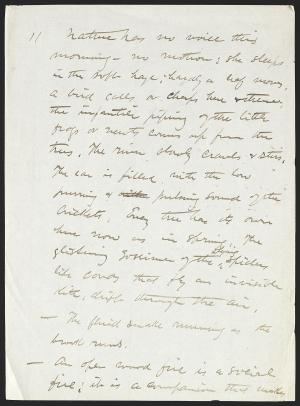 11 Nature has no voice this
morning - no motion; she sleeps
in the soft haze; hardly a leaf moves,
a bird calls or cheeps here & there,
the infantile piping of the little
frogs or newts comes up from the
trees. The river slowly crawls &
The ear is filled with the low
purring & pulsing sound of the
crickets. Every tree has its own
hue now as in spring. The
glistening gossamer of the spiders
like that fly an invisible
kite, drift through the air,
- The fluid snake running as the
brook runs.
- An open wood fire is a social
fire; it is a companion that makes